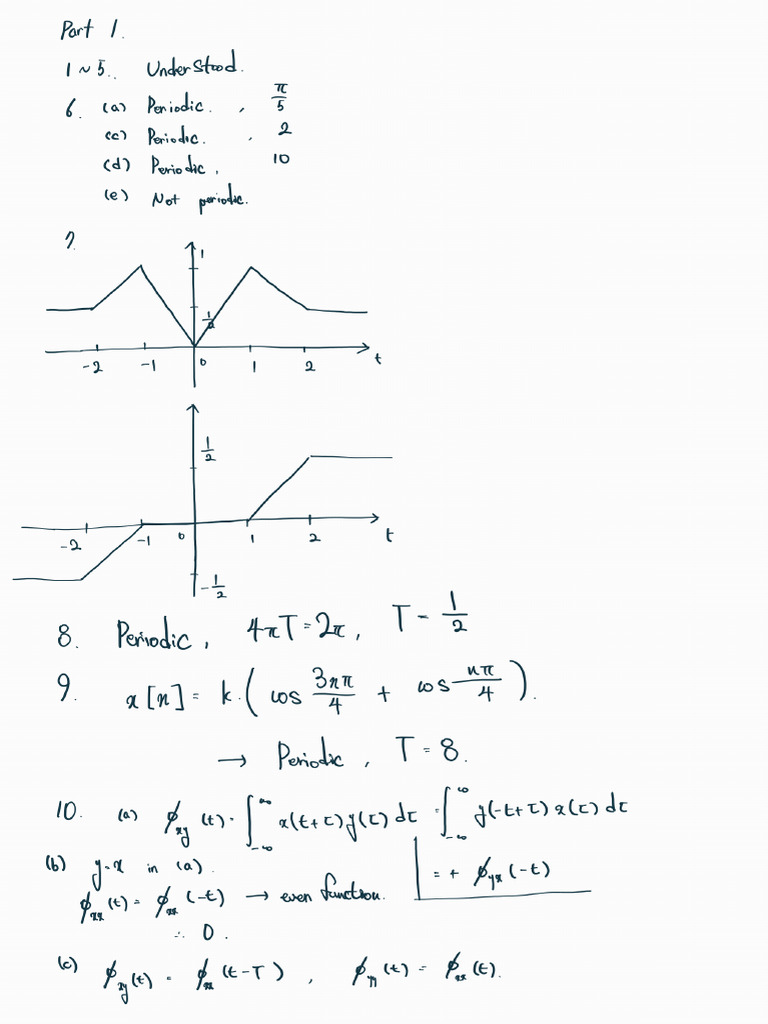 Part 1.
1 ~ 5. Understood.
6. (a) Periodic. , π/5
(c) Periodic. , 2
(d) Periodic, 10
(e) Not periodic.
7.
1
1/2
-2 -1 0 1 2 t
1/2
-2 -1 0 1 2 t
-1/2
8. Periodic, 4πT = 2π, T = 1/2
9. x[n] = k.(cos 3nπ/4 + cos nπ/4).
→ Periodic, T = 8.
10. (a) ϕxy(t) = ∫_{-∞}^{∞} x(t+τ)y(τ)dτ = ∫_{-∞}^{∞} y(-t+τ)x(τ)dτ
= + ϕyx(-t)
(b) y=x in (a).
ϕxx(t) = ϕxx(-t) → even function.
∴ 0.
(c) ϕxy(t) = ϕxx(t-T) , ϕyy(t) = ϕxx(t).